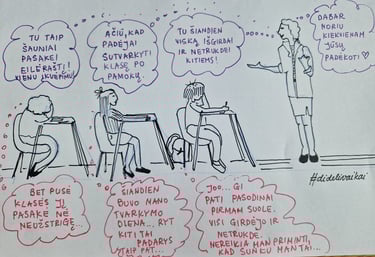 TU TAIP
ŠAUNIAI
PASAKEI
EILĖRAŠTĮ!
VIENU ĮKVĖPIMU!
AČIŪ, KAD
PADĖJAI
SUTVARKYTI
KLASĘ PO
PAMOKŲ.
TU ŠIANDIEN
VISKĄ IŠGIRDAI
IR NETRUKDEI
KITIEMS!
DABAR
NORIU
KIEKVIENAM
JŪSŲ
PADĖKOTI
#dideli vaikai
BET PUSĖ
KLASĖS JĮ
PASAKĖ NĖ
NEUŽSTRIGĘ...
ŠIANDIEN
BUVO MANO
TVARKYMO
DIENA... RYT
KITI TAI
PADARYS
TAIP PAT...
JOO... GI
PATI PASODINAI
PIRMAM SUOLE.
VISI GIRDĖJO IR
NETRUKDĖ.
NEREIKIA MAN PRIMINTI,
KAD SUNKU MAN TAI...